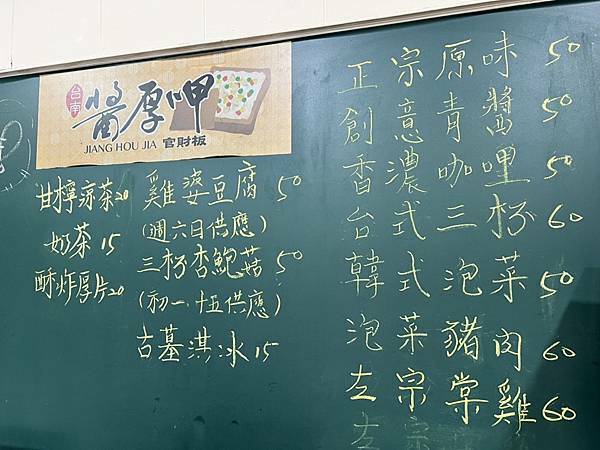 台南
醬厚呷
JIANG HOU JIA 官財板
甘檸涼茶20
奶茶15
酥炸厚片20
雞婆豆腐 50
(週六日供應)
三杯杏鮑菇 50
(初一、十五供應)
古墓洪冰15
正宗原味 50
創意青醬 50
香濃咖哩 50
台式三杯 60
韓式泡菜 50
泡菜豬肉 60
左宗棠雞 60
左宗